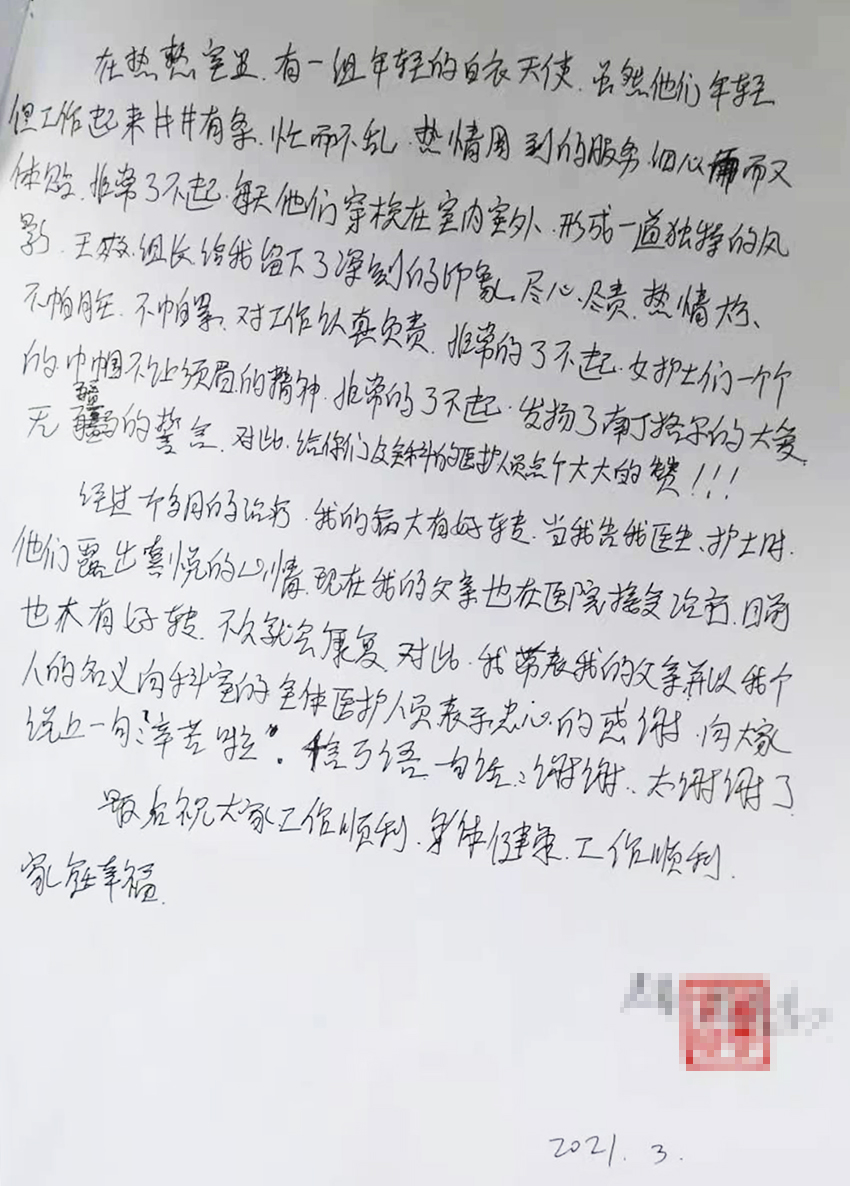 在热熬室里，有一组年轻的白衣天使，虽然他们年轻
但工作起来井井有条，忙而不乱，热情周到的服务，细心而又
体贴，非常了不起，每天他们穿梭在室内室外，形成一道独特的风
影，王组长给我留下了深刻的印象，尽心、尽责，热情大方、
不怕脏，不怕累，对工作认真负责，非常的了不起，女护士们一个个
的巾帼不让须眉的精神，非常的了不起，发扬了南丁格尔的大爱
无疆的誓言，对此，给你们科的医护人员点个大大的赞！！！
经过个多月的治疗，我的病大有好转，当我告我医生、护士时，
他们露出喜悦的心情，现在我的父亲也在医院接受治疗，目前
也大有好转，不久就会康复，对此，我带表我的父亲并以我个
人的名义向科室的全体医护人员表示忠心的感谢，向大家
说上一句：“辛苦啦”。语，一句话：谢谢，太谢谢了
最后祝大家工作顺利，身体健康，工作顺利，
家庭幸福。
2021.3.